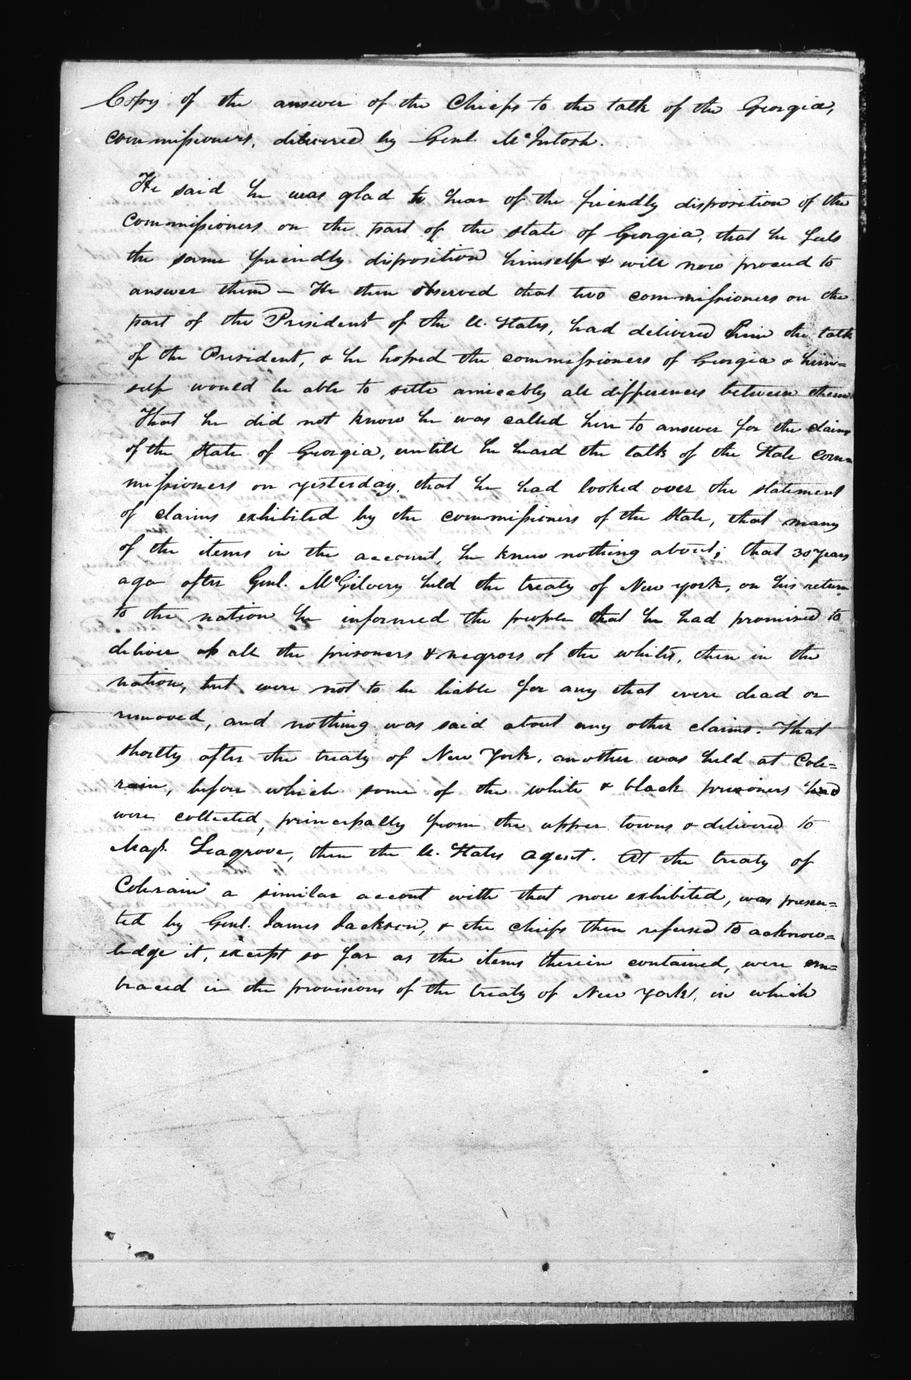 Copy of the answer of the Chiefs to the talk of the Georgia,
commissioners, delivered by Genl. McIntosh.
He said he was glad to hear of the friendly disposition of the
Commissioners on the part of the state of Georgia, that he feels
the same friendly disposition himself & will now proceed to
answer them — He then observed that two commissioners on the
part of the President of the U. States, had delivered him the talk
of the President, & he hoped the commissioners of Georgia & him=
self would be able to settle amicably all differences between them.
That he did not know he was called here to answer for the claims
of the State of Georgia, untill he heard the talk of the State com=
missioners on yesterday, that he had looked over the statement
of claims exhibited by the commissioners of the State, that many
of the items in the account, he knew nothing about; that 30 years
ago after Genl. McGilvery held the treaty of New york, on his return
to the nation he informed the people that he had promised to
deliver up all the prisoners & negroes of the whites, then in the
nation, but were not to be liable for any that were dead or
removed, and nothing was said about any other claims. That
shortly after the treaty of New York, another was held at Cole=
rain, before which some of the white & black prisoners had
were collected, principally from the upper towns & delivered to
Majr. Seagrove, then the U. States agent. At the treaty of
Colerain a similar account with that now exhibited, was presen=
ted by Genl. James Jackson, & the chiefs then refused to acknow=
ledge it, except so far as the items therein contained, were em=
braced in the provisions of the treaty of New York, in which